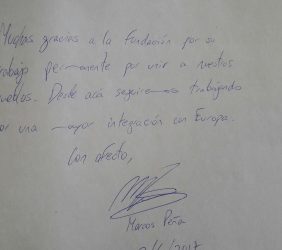 Muchas gracias a la Fundación por su
trabajo permanente por unir a nuestros
pueblos. Desde acá seguiremos trabajando
por una mayor integración con Europa.
Con afecto,
Marcos Peña
/2017